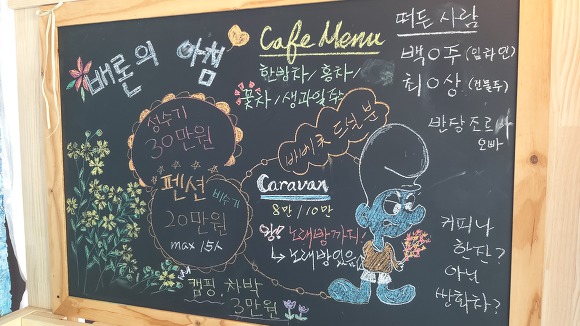 배론의 아침
Cafe Menu
한방차/홍차/
꽃차/생과일쥬스
떠든 사람
백O주 (임차인)
최O상 (건물주)
반당 조르바
오빠
성수기
30만원
펜션
비수기
20만원
max 15人
바베큐 드실 분
Caravan
8만/10만
노래방까지!
노래방있음
캠핑, 차박
3만원
커피나
한잔?
아님
쌍화차?